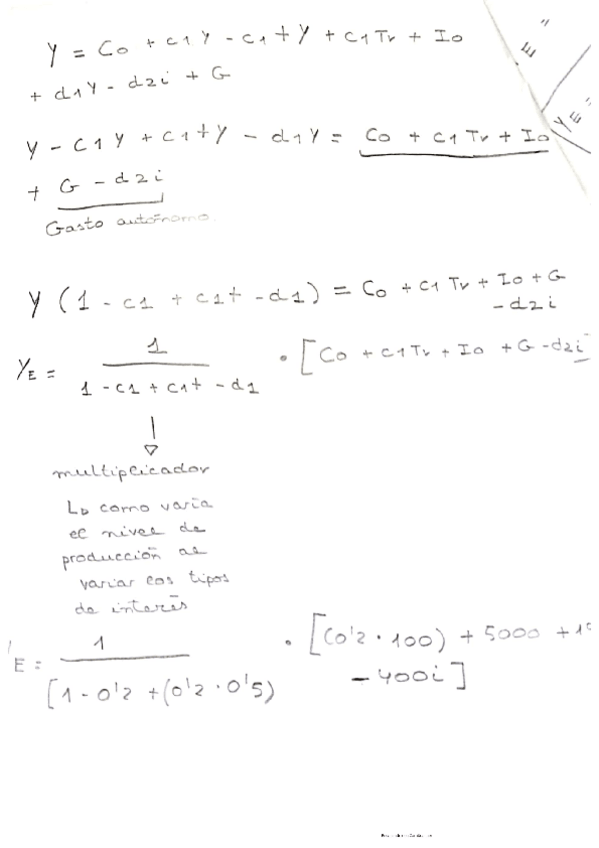 Y = Co + c1Y - c1tY + c1Tr + Io
+ d1Y - d2i + G
Y - c1Y + c1tY - d1Y = Co + c1Tr + Io
+ G - d2i
Gasto autónomo
E"
YE=
Y (1 - c1 + c1t - d1) = Co + c1 Tr + Io + G
- d2i
YE = 1 / 1 - c1 + c1t - d1 · [Co + c1Tr + Io + G - d2i
multiplicador
Lo como varia
el nivel de
producción al
variar los tipos
de interés
E = 1 / [1 - 0'2 + (0'2 · 0'5) · [(0'2 · 100) + 5000 +
- 400i]